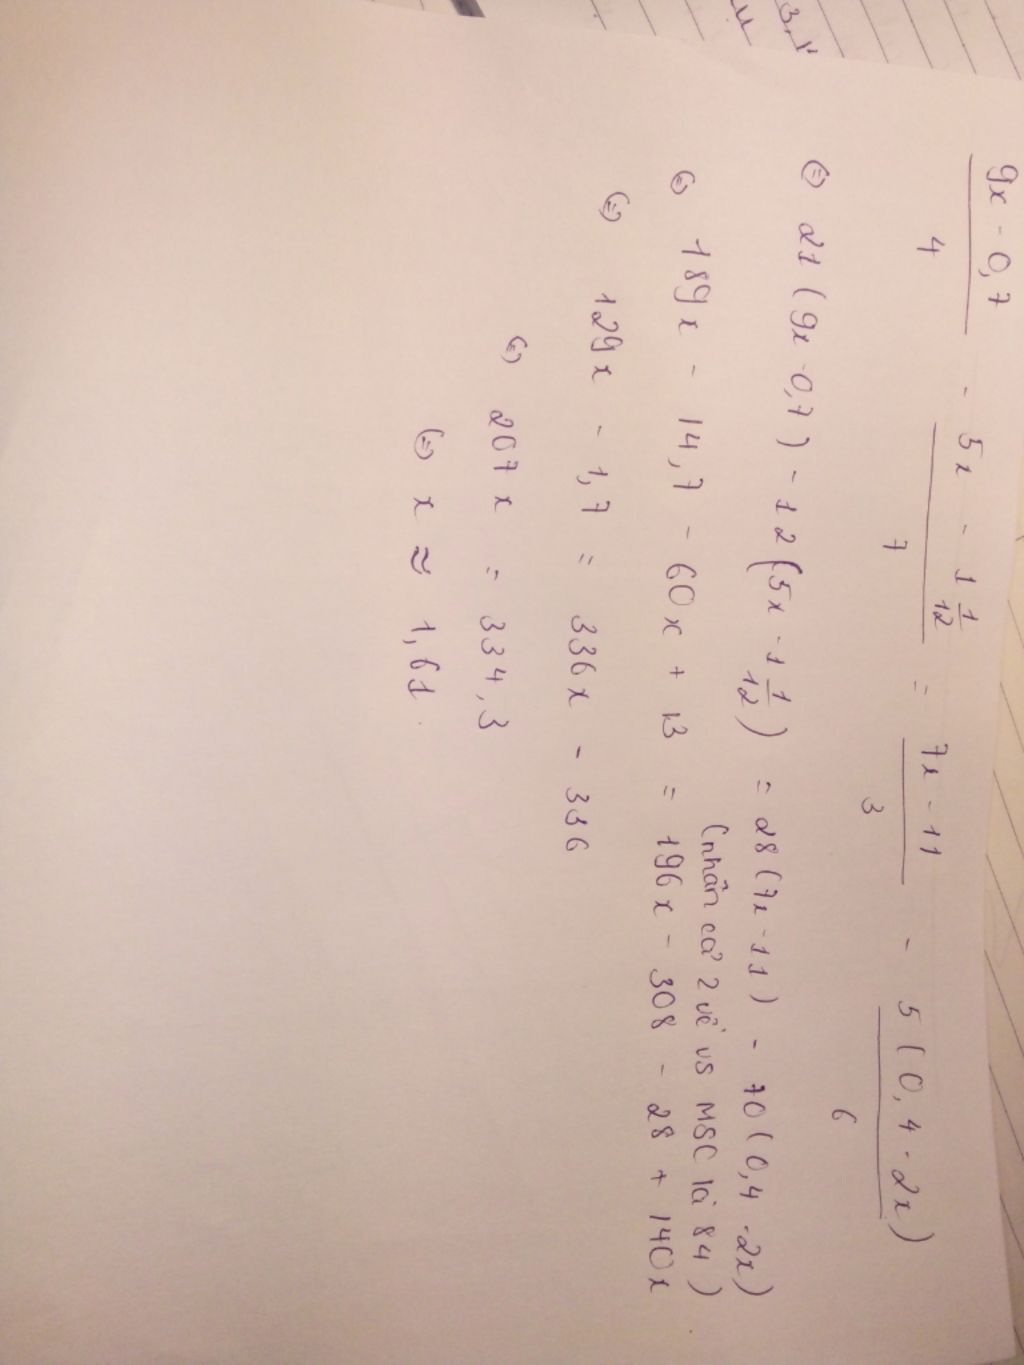 3.1
(9x - 0,7)/4 - (5x - 1 1/12)/7 = (7x - 11)/3 - 5(0,4 - 2x)/6
(=) 21(9x - 0,7) - 12(5x - 1 1/12) = 28(7x - 11) - 70(0,4 - 2x)
(nhân cả 2 vế vs MSC là 84)
(=) 189x - 14,7 - 60x + 13 = 196x - 308 - 28 + 140x
(=) 129x - 1,7 = 336x - 336
(=) 207x = 334,3
(=) x ≈ 1,61.